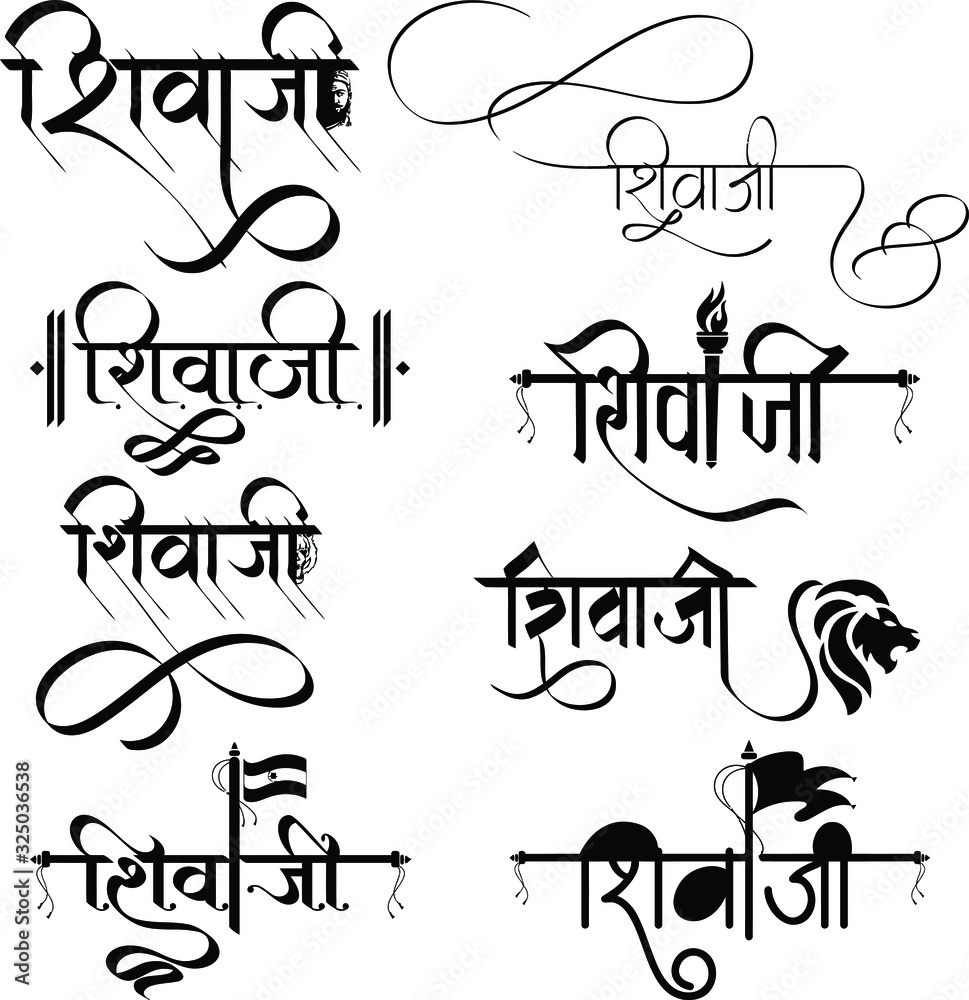 शिवाजी
शिवाजी
शिवाजी
शिवाजी
शिवाजी
शिवाजी
शिवाजी
शिवाजी
Adobe Stock | #325036538